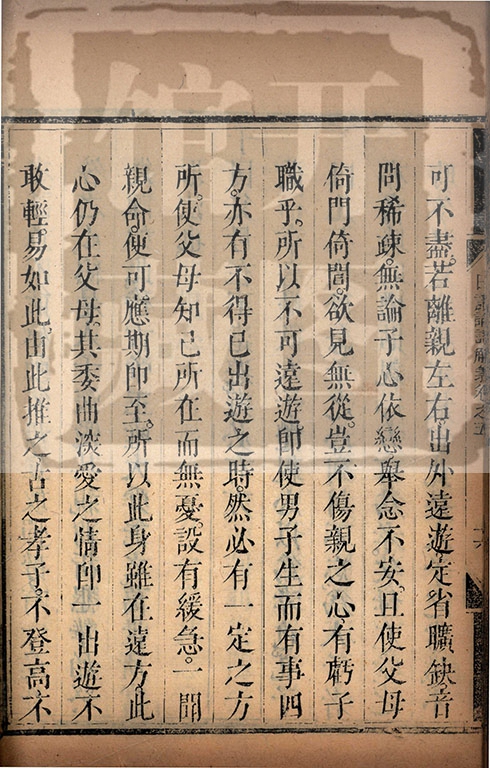 可不盡。若離親左右。出外遠遊。定省曠缺。音
問稀疎。無論子心依戀。舉念不安。且使父母
倚門倚閭。欲見無從。豈不傷親之心。有虧子
職乎。所以不可遠遊。即使男子生而有事四
方。亦有不得已出遊之時。然必有一定之方
所。使父母知已所在而無憂。設有緩急。一聞
親命。便可應期即至。所以此身雖在遠方。此
心仍在父母。其委曲深愛之情。即一出遊不
敢輕易如此。由此推之。古之孝子。不登高。不